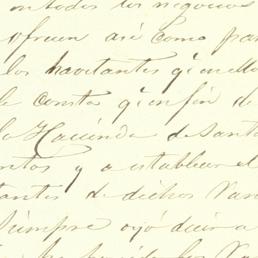 en todos los negocios
ofrecen así como par
los havitantes qe. en ello
le consta qe. en fín de
la Hacienda de Sant
ntos y a establecer el
tantes de dichos Ran
Siempre oyó decir a